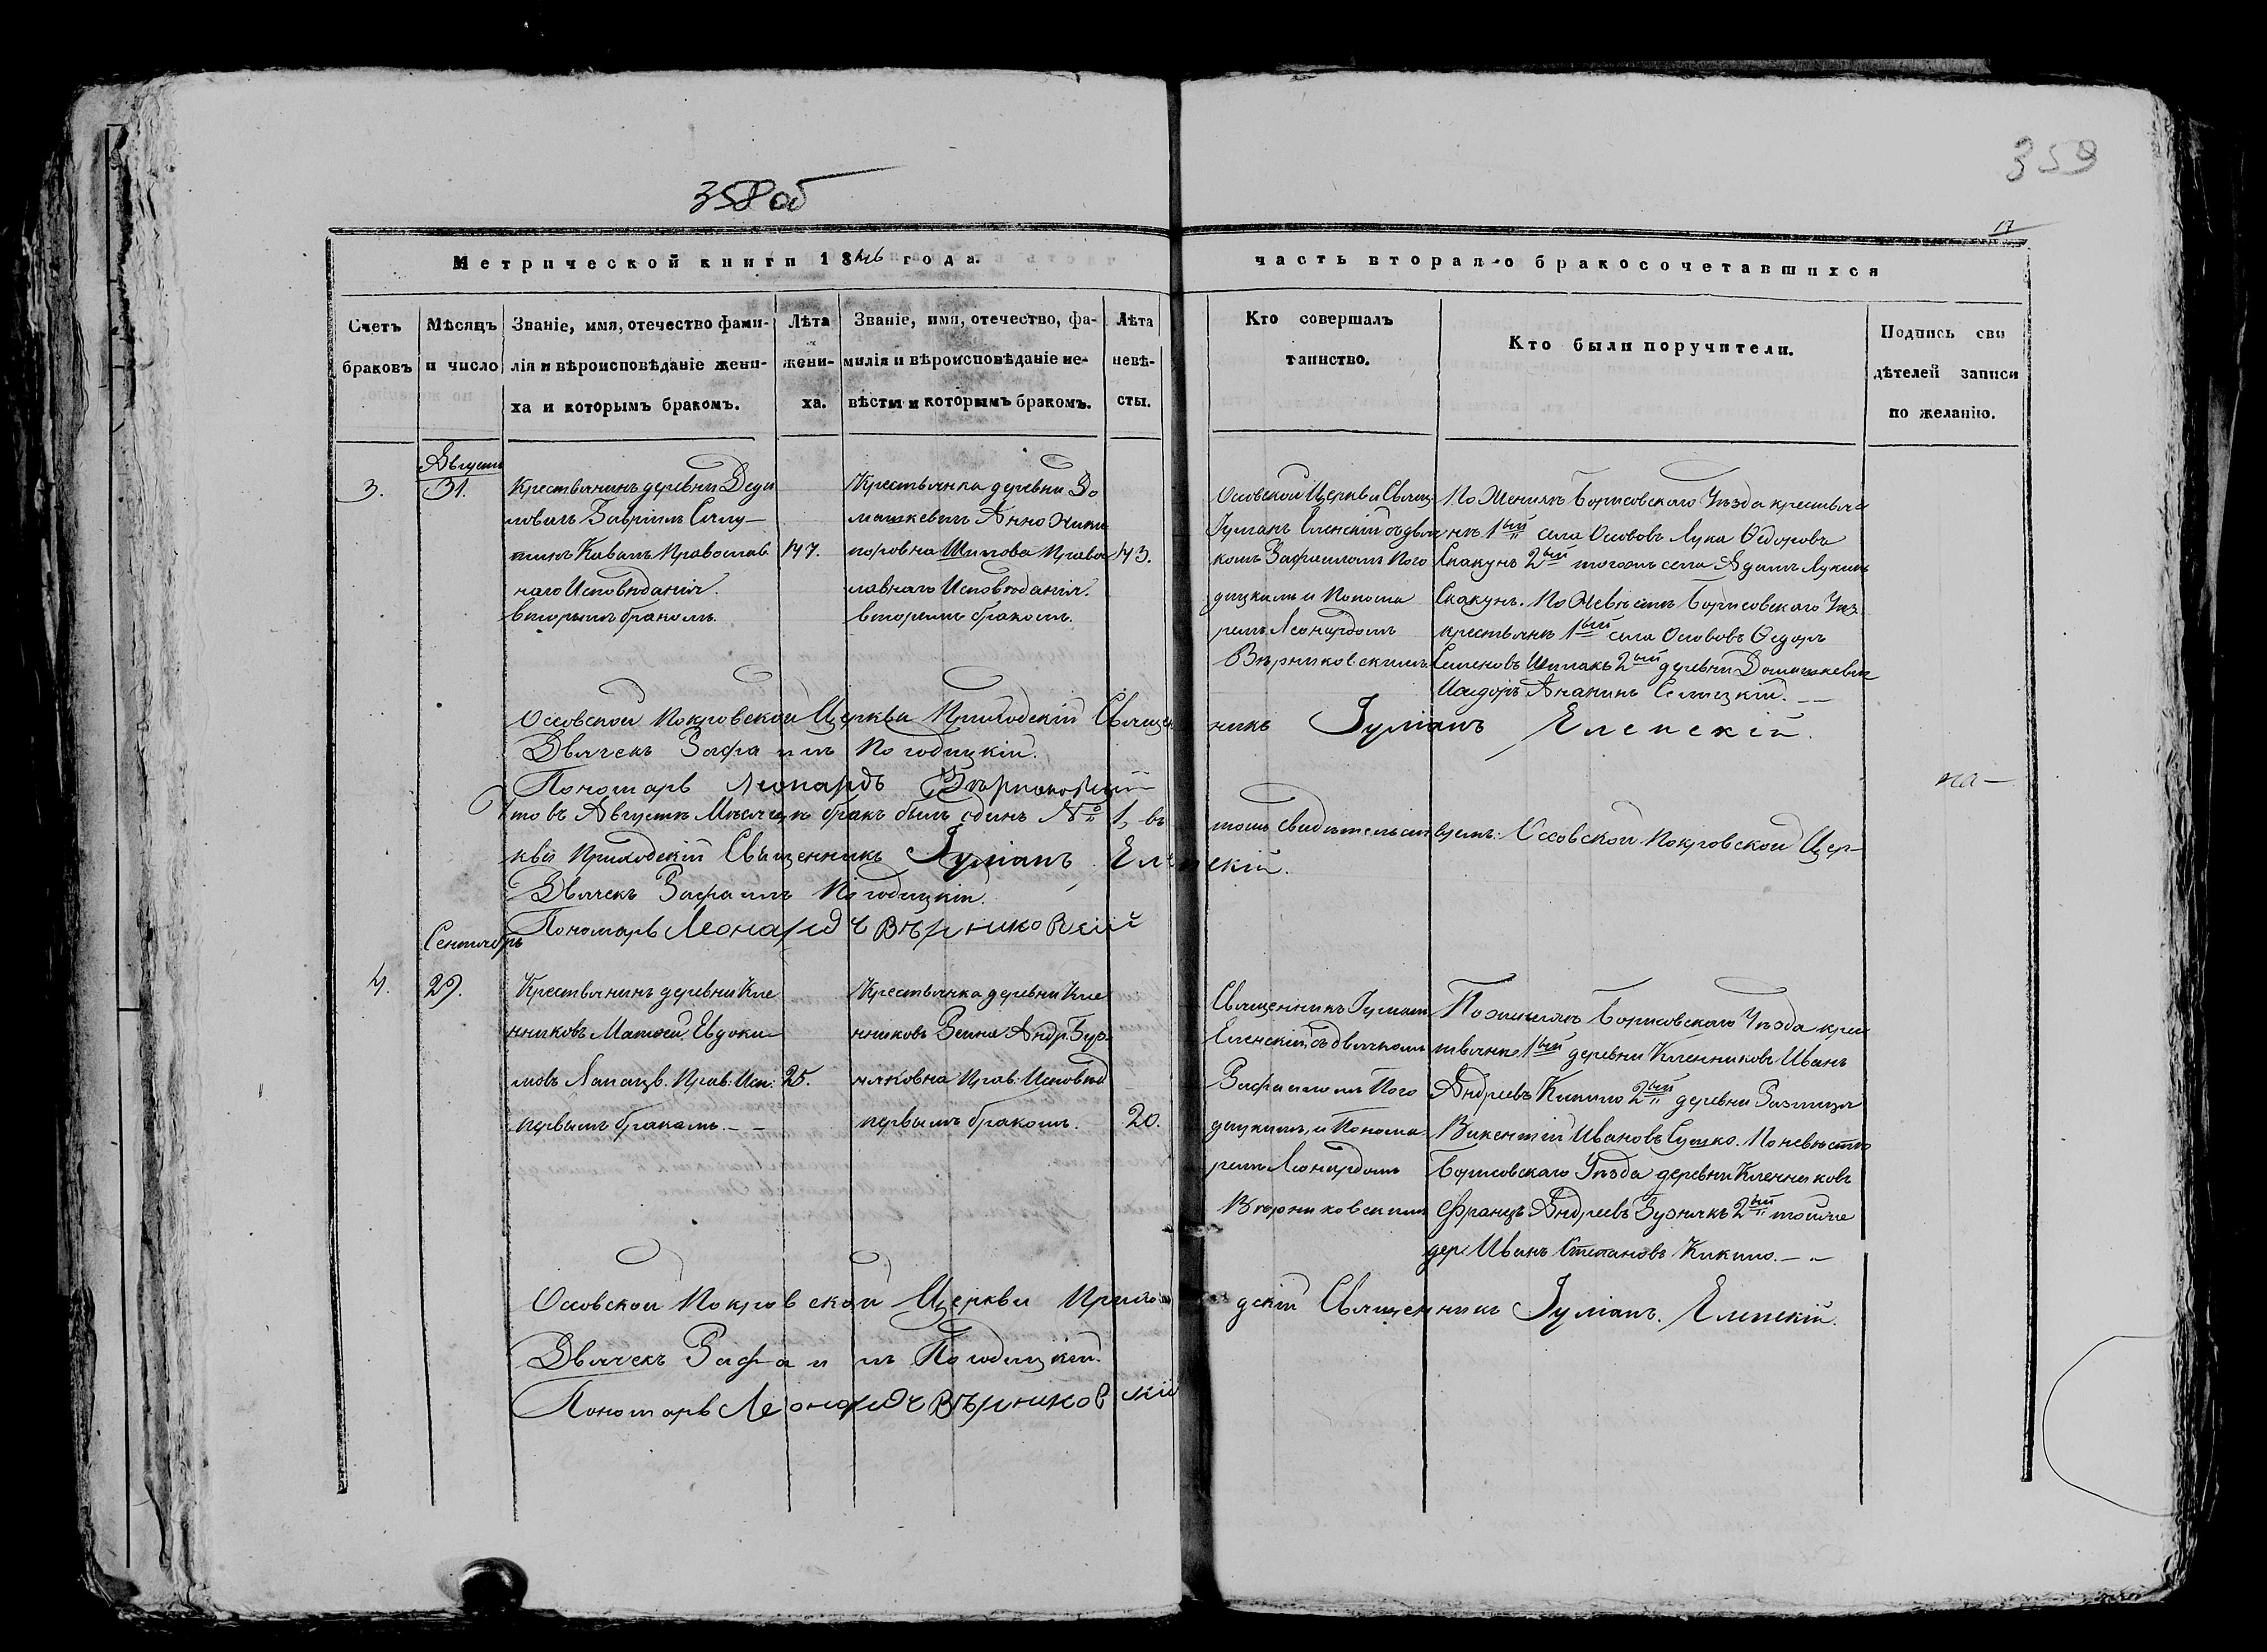 358об
359
17
Метрической книги 1846 года.
часть вторая о бракосочетавшихся
Счетъ браковъ
Мѣсяцъ и число
Званіе, имя, отечество фами-
лія и вѣроисповѣданіе жени-
ха и которымъ бракомъ.
Лѣта
жени-
ха.
Званіе, имя, отечество, фа-
милія и вѣроисповѣданіе не-
вѣсты и которымъ бракомъ.
Лѣта
невѣ-
сты.
Кто совершалъ
таинство.
Кто были поручители.
Подпись сви
дѣтелей записи
по желанію.
3.
Августъ
31.
Крестьянинъ деревни Деди
ловичъ Гавріилъ
Православ
наго Исповѣданія.
вторымъ бракомъ.
47.
Крестьянка деревни До
машкевичъ Анна Ники
форовна Шипова Правос
лавнаго Исповѣданія.
вторымъ бракомъ.
43.
Осовской Церкви Свящ:
Іуліанъ Еленскій съ дьяч
комъ Рафаиломъ Пого
дицкимъ и Понома
ремъ Леонардомъ
Вѣрниковскимъ
По Женихѣ Борисовскаго Уѣзда крестьяне
1ый села Ососовъ Лука Ѳедоровъ
Скакунъ 2ый тогожъ села Адамъ Лукинъ
Скакунъ. По Невѣстѣ Борисовскаго Уѣз.
крестьяне 1ый села Ососовъ Ѳедоръ
Семеновъ Шипакъ 2ый деревни Домашкевич
Исидоръ Ананинъ
Оссовской Покровской Церкви Приходскій Священ
никъ Іуліанъ Еленскій.
Дьячекъ Рафаилъ Погодицкій.
Пономарь Леонардъ Вѣрниковскій
Что въ Августѣ Мѣсяцѣ бракъ былъ одинъ № 1, въ
томъ свидѣтельствуемъ: Оссовской Покровской Цер-
кви Приходскій Священникъ Іуліанъ Еленскій.
Дьячекъ Рафаилъ Погодицкій.
Пономарь Леонардъ Вѣрниковскій
Сентябрь
4.
29.
Крестьянинъ деревни Кле
нниковъ Матѳей Евдоки-
мовъ Прав: Исп:
первымъ бракомъ.
25.
Крестьянка деревни Кле
нниковъ Андр.
Прав: Исповѣд
первымъ бракомъ.
20.
Священникъ Іуліанъ
Еленскій, съ дьячкомъ
Рафаиломъ Пого
дицкимъ, и Понома
ремъ Леонардомъ
Вѣрниковскимъ
По женихѣ Борисовскаго Уѣзда крес
тьяне 1ый деревни Кленниковъ Иванъ
Андреевъ Кикило 2ый деревни
Викентій Ивановъ Сушко. По невѣстѣ
Борисовскаго Уѣзда деревни Кленниковъ
Францъ Андреевъ 2ый тойже
дер: Иванъ Степановъ Кикило.
Оссовской Покровской Церкви Приходскій Священникъ Іуліанъ Еленскій.
Дьячекъ Рафаилъ Погодицкій.
Пономарь Леонардъ Вѣрниковскій